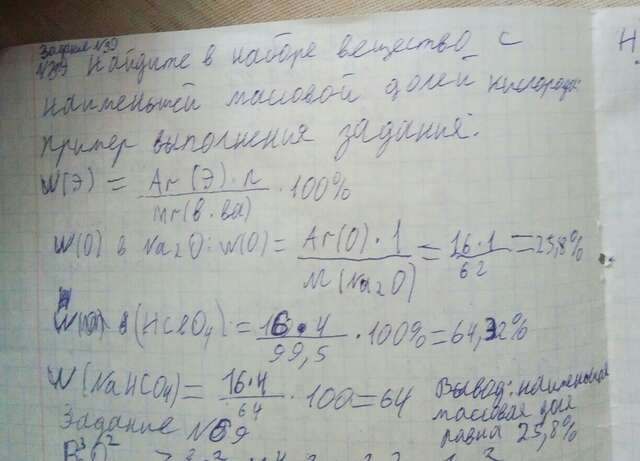 Задание №39
№39 Найдите в наборе вещество с
наименьшей массовой долей кислорода:
пример выполнения задания:
W(Э) = Ar(Э)·n / Mr(в-ва) · 100%
W(O) в Na₂O: W(O) = Ar(O)·1 / M(Na₂O) = 16·1 / 62 = 25,8%
(HClO₄) = 16·4 / 99,5 · 100% = 64,32%
W(NaHCO₄) = 16·4 / 64 · 100 = 64
Вывод: наименьшая
массовая доля
равна 25,8%
Задание №59
H